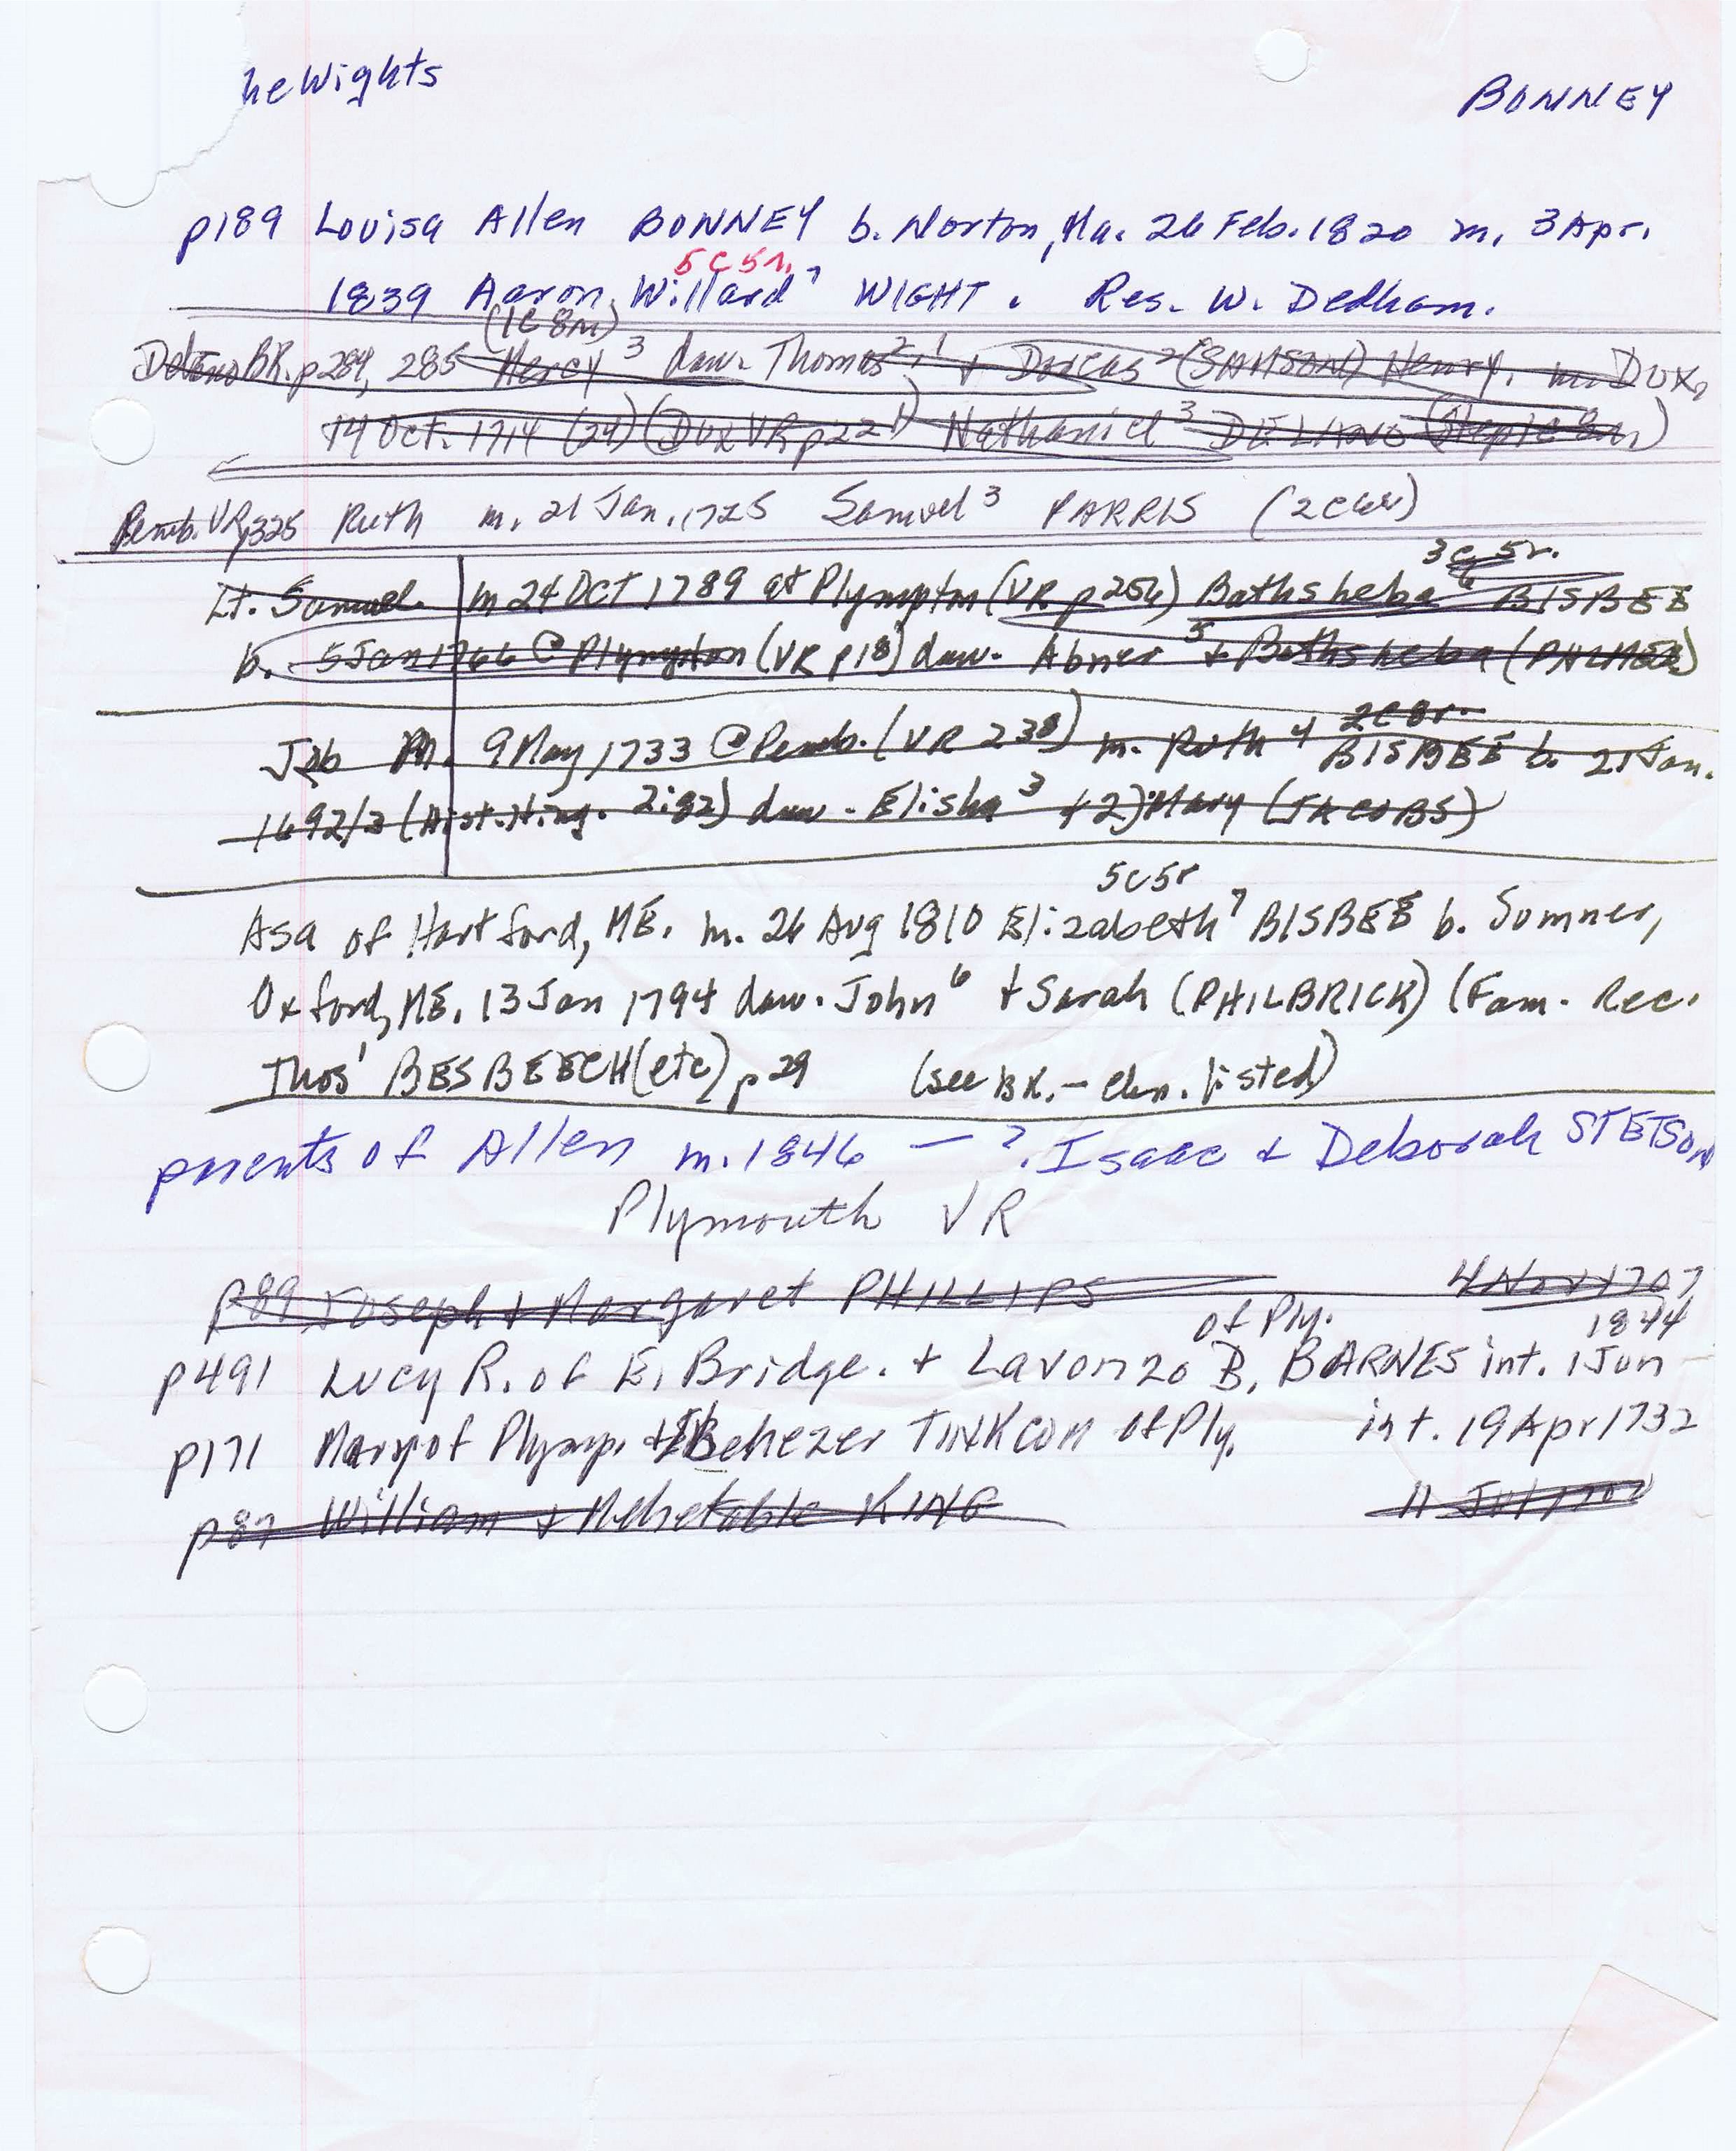 he Wights
BONNEY
p189 Louisa Allen BONNEY b. Norton, Ma. 26 Feb. 1820 m. 3 Apr.
5c5r.
1839 Aaron Willard 7 WIGHT. Res. W. Dedham.
(1C 8r)
BK. p 284, 285 Mercy 3 daw. Thomas 2, 1 + Dorcas 2 (SAMSON) Henry, m. Dux,
14 Oct. 1714 (24) (Dux VR p 221) Nathaniel 3 DELANO
Pemb. VR p325 Ruth m. 21 Jan. 1725 Samuel 3 PARRIS
3c 5r.
Lt. Samuel m 24 OCT 1789 at Plympton (VR p256) Bathsheba 6 BISBEE
b. 5 Jan 1766 @ Plympton (VR p18) daw. Abner 5 + Bathsheba (PALMER)
2c 8r.
Job m. 9 May, 1733 @ Pemb. (VR 238) m. Ruth 4 BISBEE b. 21 Jan.
1692/3 (Hist. Hing. 2:82) daw. Elisha 3 + 2) Mary (JACOBS)
5c5r
Asa of Hartford, ME. m. 26 Aug 1810 Elizabeth 7 BISBEE b. Sumner,
Oxford, ME. 13 Jan 1794 daw. John 6 + Sarah (PHILBRICK) (Fam. Rec.
Thos' BESBEECH (etc) p 29 (see BK. - chn. listed)
parents of Allen m. 1846 - ? Isaac & Deborah STETSON
Plymouth VR
p89 Joseph + Margaret PHILLIPS 4 Nov 1707
of Ply. 1844
p491 Lucy R. of E. Bridge. + Lavonzo B. BARNES int. 1 Jun
p171 Mary of Plymp. + Ebenezer TINKCOM of Ply. int. 19 Apr 1732
p87 William + Mehetable KING 11 Jul 1702